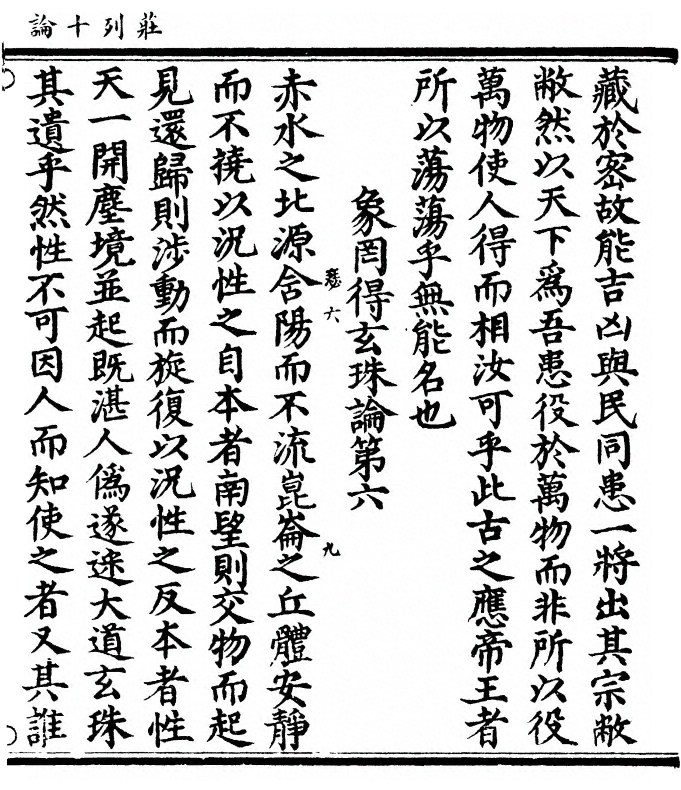 莊列十論
藏於密故能吉凶與民同患一將出其宗敝
敝然以天下爲吾患役於萬物而非所以役
萬物使人得而相汝可乎此古之應帝王者
所以蕩蕩乎無能名也
象罔得玄珠論第六
赤水之北源含陽而不流崑崙之丘體安靜
而不撓以況性之自本者南望則交物而起
見還歸則涉動而旋復以況性之反本者性
天一開塵境並起既湛人僞遂迷大道玄珠
其遺乎然性不可因人而知使之者又其誰
六
九